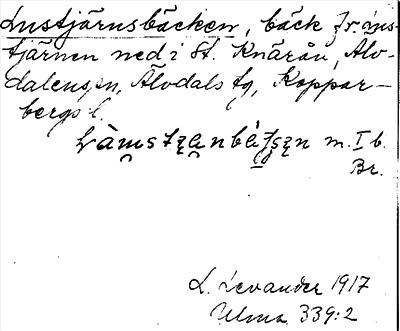 Lustjärnsbäcken, bäck fr. Lus-
tjärnen ned i St. Knärån, Älv-
dalens sn, Älvdals tg, Koppar-
bergs l.
m. I b.
Br.
L. Levander 1917
Ulma 339:2